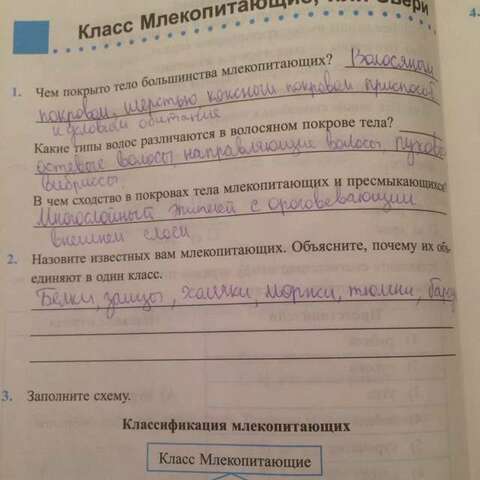 Класс Млекопитающие, или Звери
1. Чем покрыто тело большинства млекопитающих? Волосяной
покровом, шерстью, кожным покровом приспособ
к условиям обитания
Какие типы волос различаются в волосяном покрове тела?
остевые волосы, направляющие волосы, пухов
вибриссы.
В чем сходство в покровах тела млекопитающих и пресмыкающихся?
Многослойный эпителий с ороговевающим
внешнем слоем
2. Назовите известных вам млекопитающих. Объясните, почему их объ-
единяют в один класс.
Белки, зайцы, хомяки, моржи, тюлени,
3. Заполните схему.
Классификация млекопитающих
Класс Млекопитающие
4.